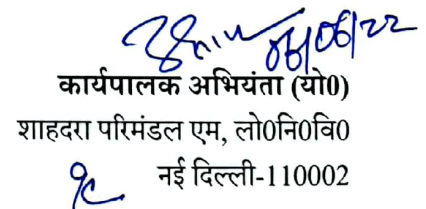 06/06/22
कार्यपालक अभियंता (यो0)
शाहदरा परिमंडल एम, लो0नि0वि0
नई दिल्ली-110002